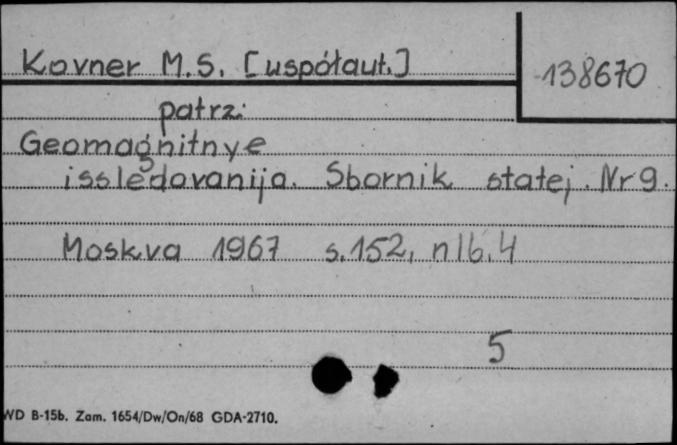 Kovner M.S. [współaut.]
138670
patrz:
Geomagnitnye
issledovanija. Sbornik statej. Nr 9.
Moskva 1967 s.152, nlb.4
5
WD B-15b. Zam. 1654/Dw/On/68 GDA-2710.